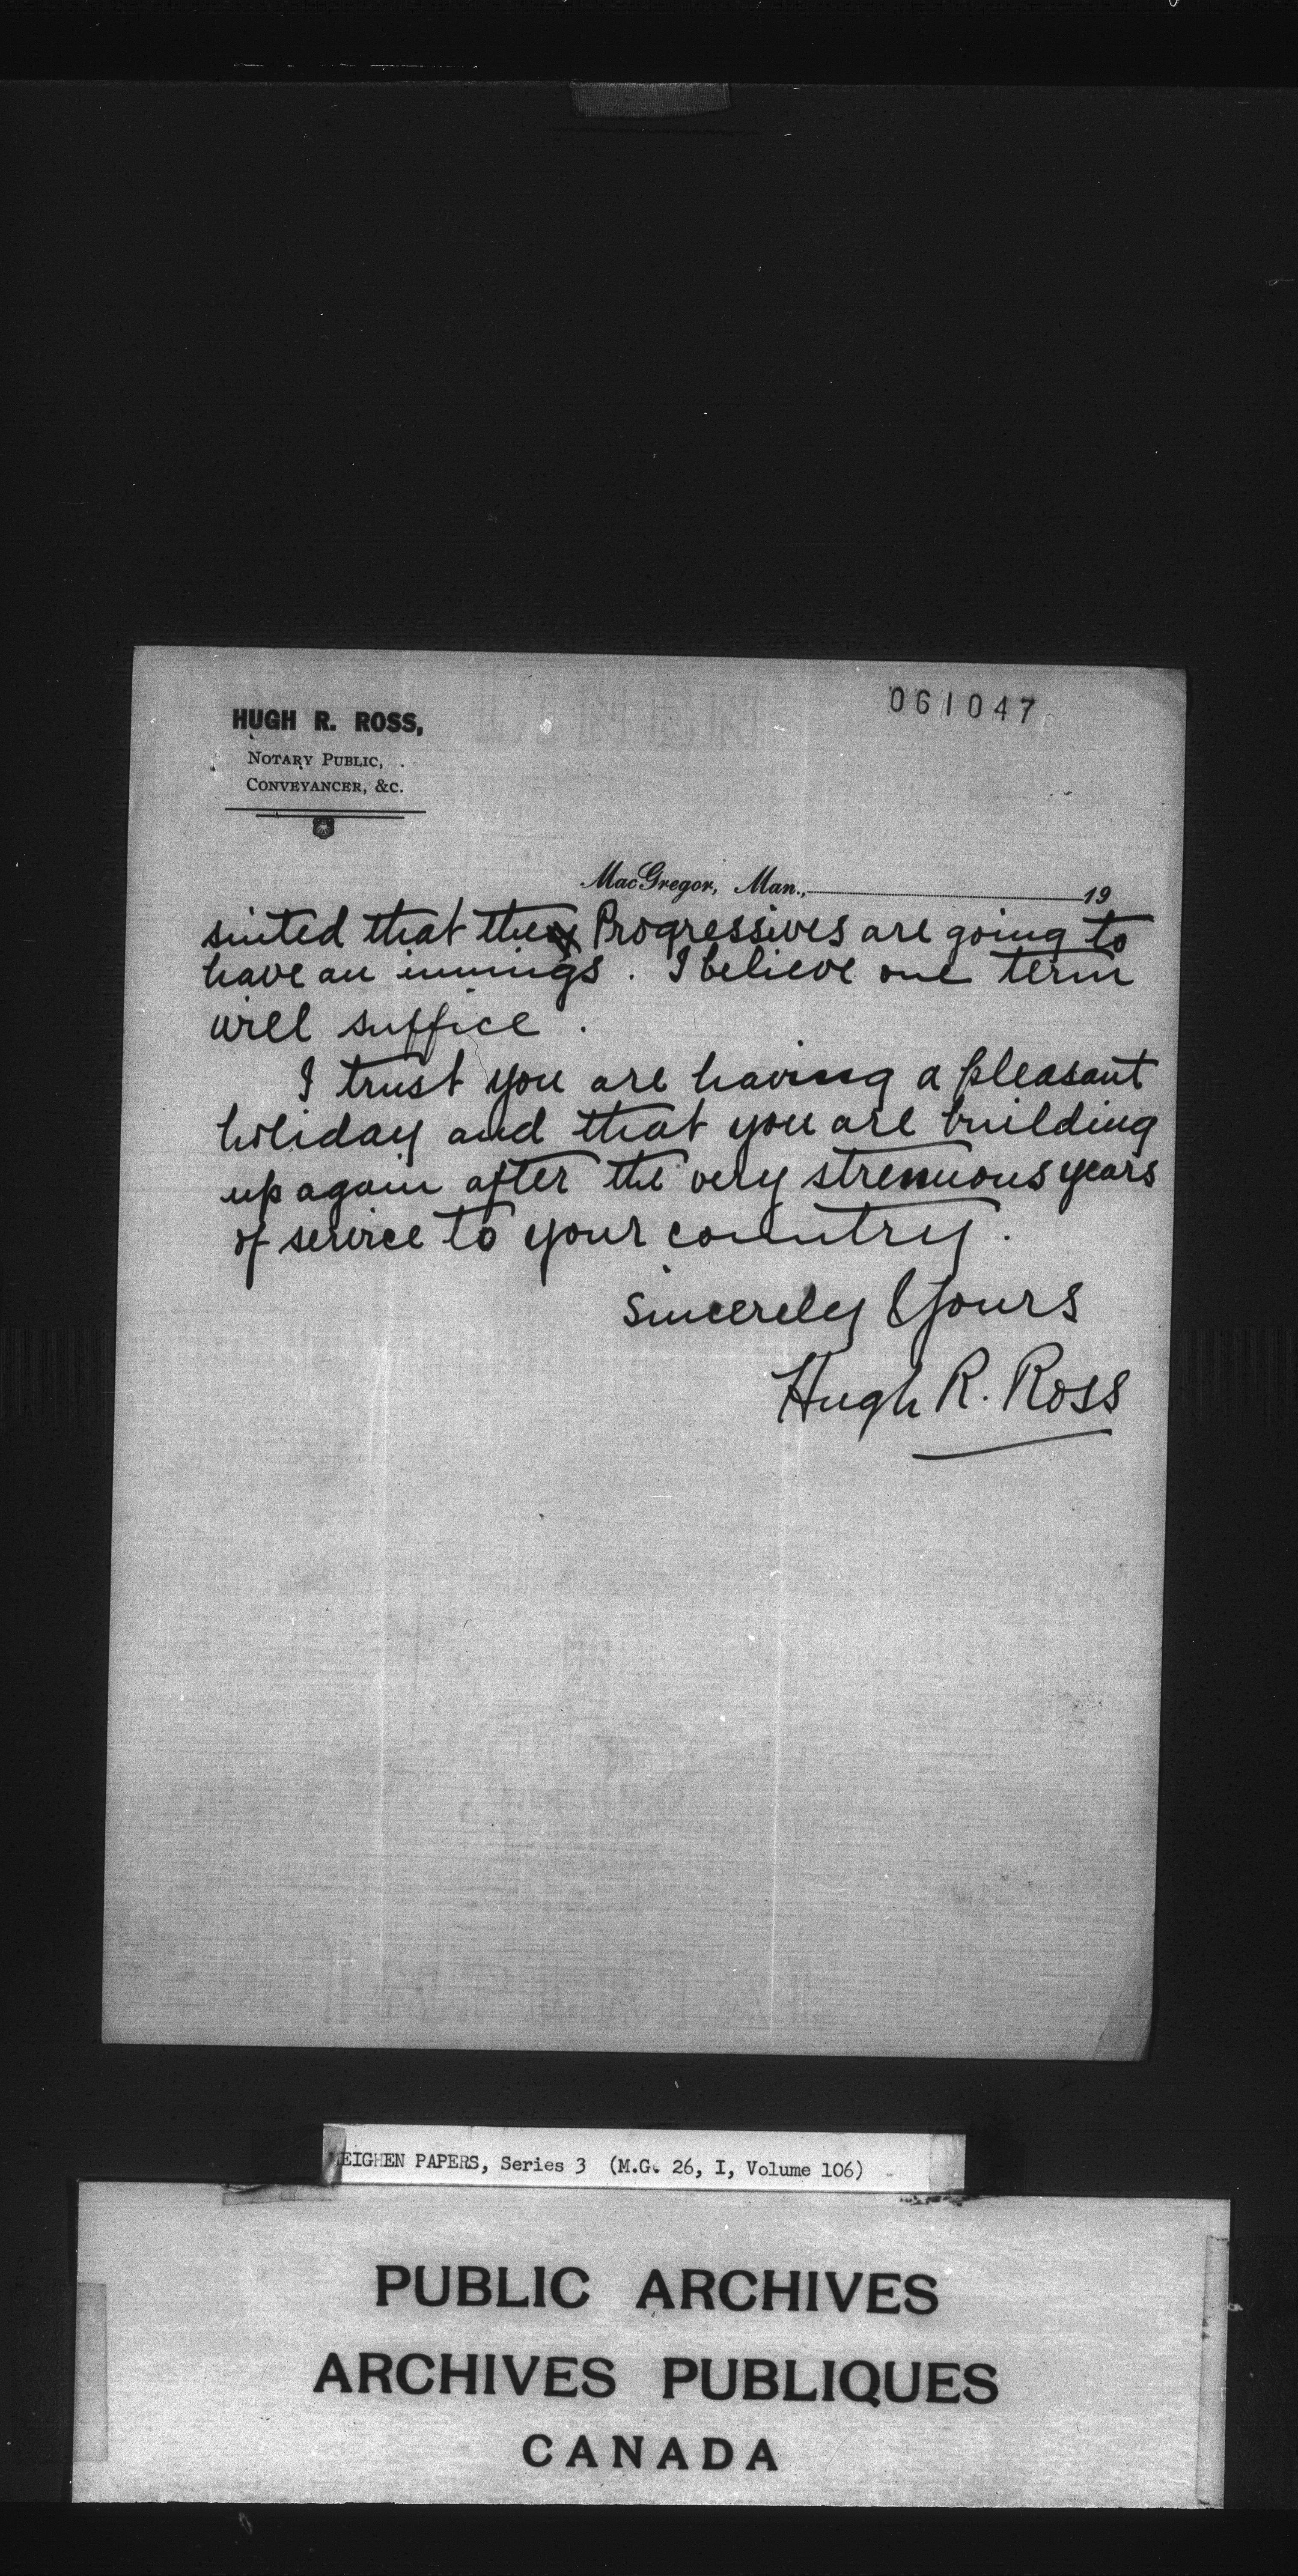 061047
HUGH R. ROSS,
NOTARY PUBLIC,
CONVEYANCER, &C.
MacGregor, Man., 19
suited that the Progressives are going to
have an innings. I believe one term
will suffice.
I trust you are having a pleasant
holiday and that you are building
up again after the very strenuous years
of service to your country.
Sincerely Yours
Hugh R. Ross
MEIGHEN PAPERS, Series 3 (M.G. 26, I, Volume 106)
PUBLIC ARCHIVES
ARCHIVES PUBLIQUES
CANADA